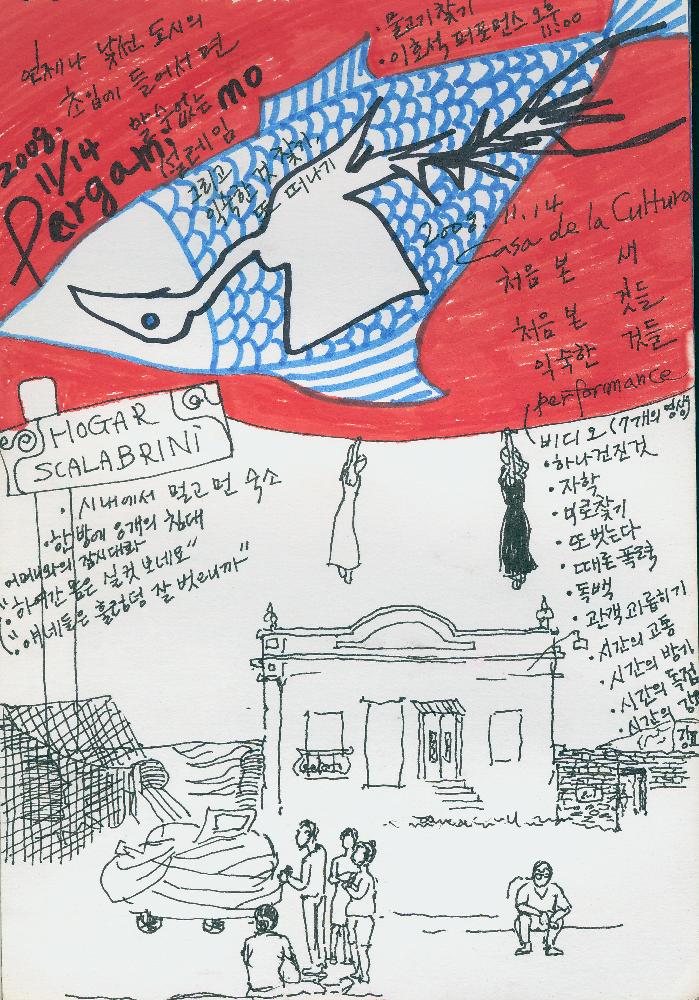 언제나 낯선 도시의
초입에 들어서면
알수없는
설레임
그리고
익숙한 것 찾기,
또 떠나기
2008.
11/14
Pergamino
· 물고기 찾기
· 이호석 퍼포먼스 오후
11:00
2008. 11. 14
Casa de la Cultura
처음 본 새
처음 본 것들
익숙한 것들
performance
비디오 (7개의 영상
· 하나 건진것
· 자학
· 미로찾기
· 또 벗는다
· 때론 폭력
· 독백
· 관객 괴롭히기
· 시간의 고통
· 시간의 방기
· 시간의 독점
· 시간의
HOGAR
SCALABRINI
· 시내에서 멀고 먼 숙소
· 한 방에 8개의 침대
어머니와의 잠시대화
"· 하여간 몸은 실컷 보네요"
"· 얘네들은 훌렁덩 잘 벗으니까"